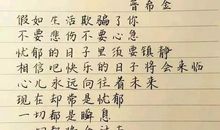 普希金
假如生活欺骗了你
不要悲伤不要心急
忧郁的日子里须要镇静
相信吧快乐的日子将会来临
心儿永远向往着未来
现在却常是忧郁
一切都是瞬息